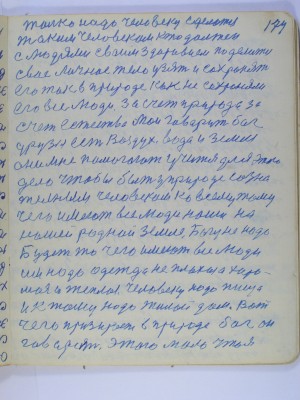 только надо человеку сделать 179
таким человеком кто должен
с людями своим здоровием поделить
свое личное тело узять и сохранят
его так в природе как не сохраняли
его все люди за счет природе за
счет естества мои говарит баг
друзья есть Воздух вода и земля
они мне помогают учится для этого
дело чтобы быть в природе созна
тельным человеком ко всему тому
чего имеют все люди наши на
нашей родной земле Богу не надо
будет то чего имеют все люди
им надо одежда не плохая харо
шая и теплая человеку надо пища
и к тому надо жилой дом. Вот
чего признают в природе баг он
говарит. этого мало